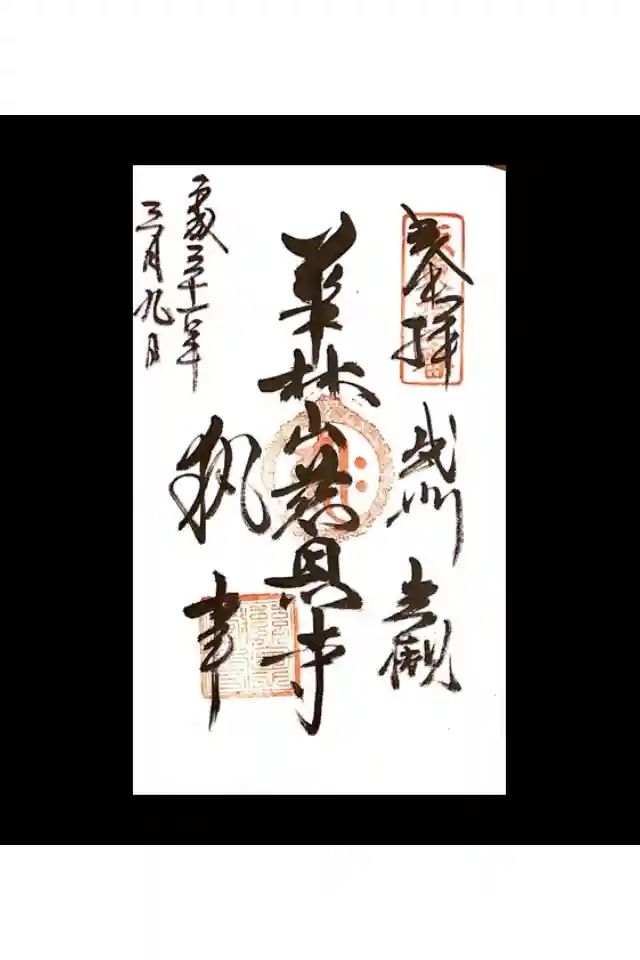 奉拝
武州 岩槻
華林山慈恩寺
執事
平成三十一年
三月九日